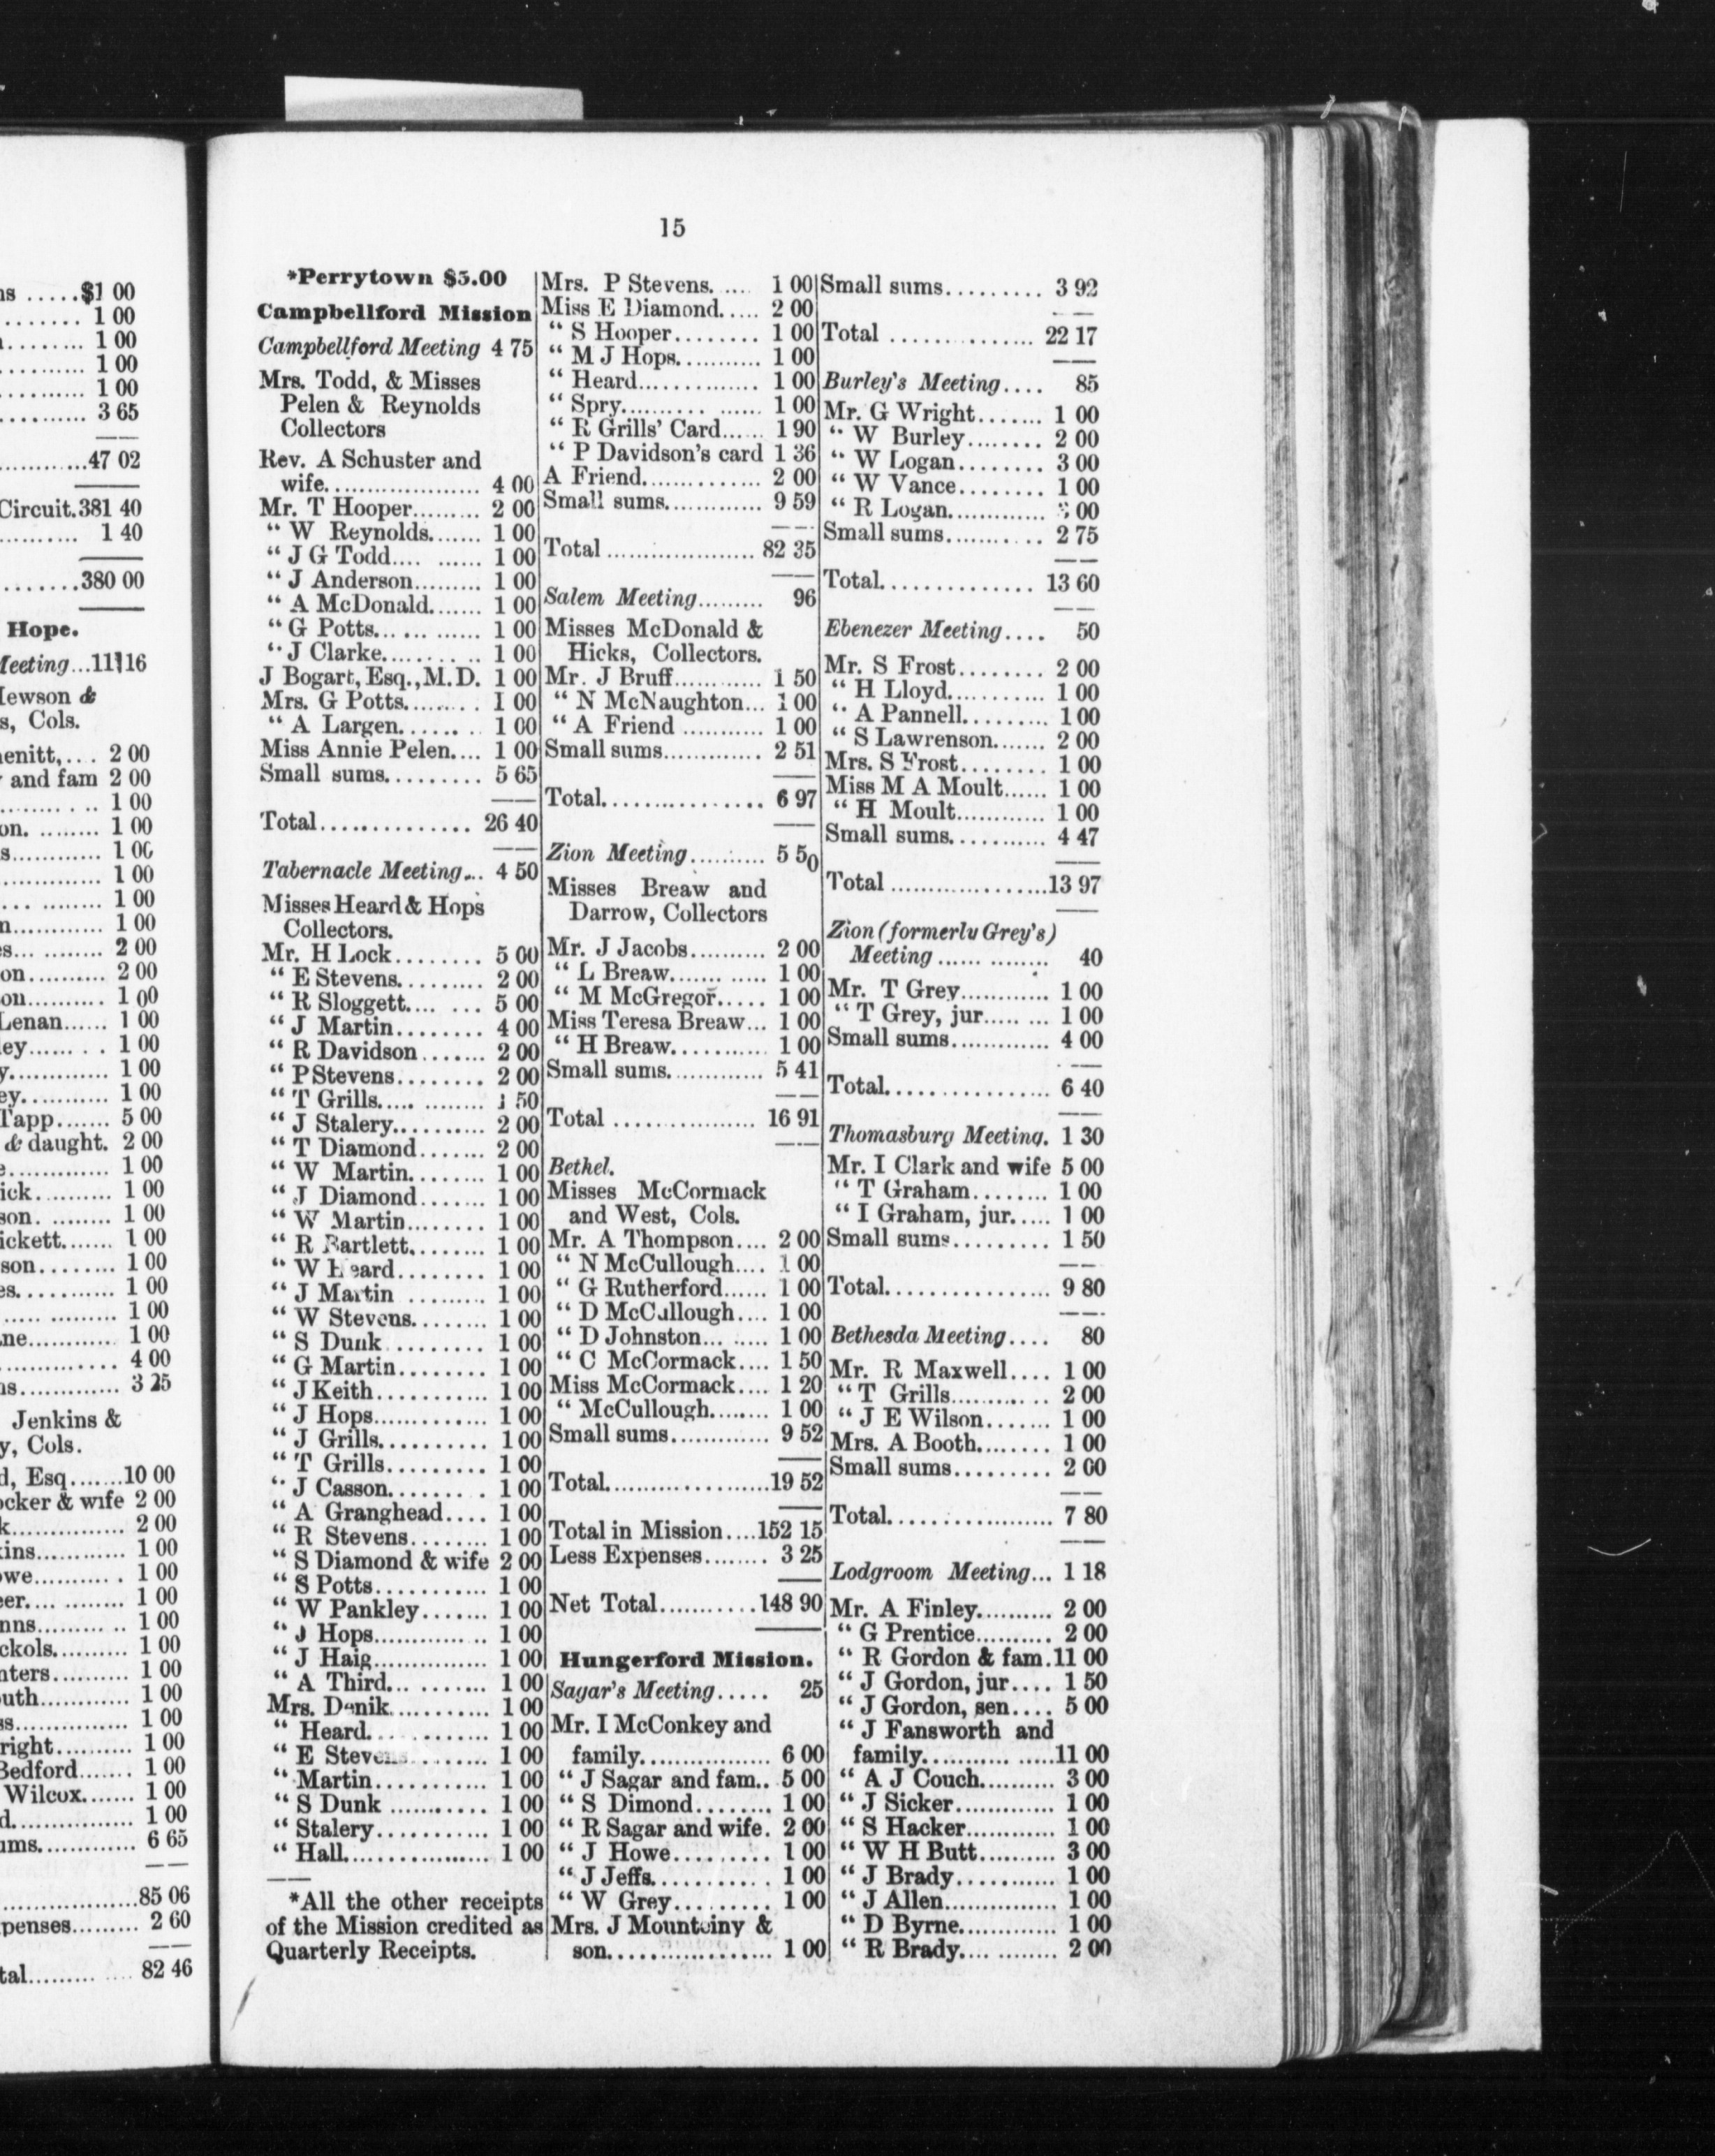 ns .....$1 00
........ 1 00
......... 1 00
.......... 1 00
.......... 1 00
.......... 3 65
...........47 02
Circuit.381 40
.......... 1 40
.......380 00
Hope.
Meeting...11 16
Hewson &
s, Cols.
enitt,... 2 00
and fam 2 00
......... 1 00
on. ........ 1 00
s............ 1 00
............. 1 00
... ........ 1 00
n............ 1 00
es... ......... 2 00
on.......... 2 00
on.......... 1 00
Lenan...... 1 00
ley....... . 1 00
y............. 1 00
ey........... 1 00
Tapp....... 5 00
& daught. 2 00
e............. 1 00
ick.......... 1 00
son. ......... 1 00
ickett....... 1 00
son........ 1 00
es............ 1 00
..... ......... 1 00
ne............ 1 00
.............. 4 00
ns............. 3 25
Jenkins &
y, Cols.
d, Esq.......10 00
ocker & wife 2 00
k............... 2 00
kins............ 1 00
owe........... . 1 00
eer.... ........ 1 00
nns.......... .. 1 00
ckols.......... 1 00
nters.......... 1 00
outh............ 1 00
ss............... 1 00
right.......... 1 00
Bedford....... 1 00
Wilcox....... 1 00
d................ 1 00
ums............. 6 65
.....................85 06
penses......... 2 60
tal.......... .... 82 46
15
*Perrytown $5.00
Campbellford Mission
Campbellford Meeting 4 75
Mrs. Todd, & Misses
Pelen & Reynolds
Collectors
Rev. A Schuster and
wife.................... 4 00
Mr. T Hooper......... 2 00
" W Reynolds....... 1 00
" J G Todd.... ...... 1 00
" J Anderson......... 1 00
" A McDonald....... 1 00
" G Potts... ... ...... 1 00
" J Clarke.......... .. 1 00
J Bogart, Esq., M.D. 1 00
Mrs. G Potts......... 1 00
" A Largen....... . 1 00
Miss Annie Pelen.... 1 00
Small sums......... 5 65
Total................ 26 40
Tabernacle Meeting... 4 50
Misses Heard & Hops
Collectors.
Mr. H Lock........ 5 00
" E Stevens......... 2 00
" R Sloggett.... ... 5 00
" J Martin........ 4 00
" R Davidson....... 2 00
" P Stevens........ 2 00
" T Grills..... ........ 1 50
" J Stalery.......... 2 00
" T Diamond....... 2 00
" W Martin........ 1 00
" J Diamond....... 1 00
" W Martin........ 1 00
" R Bartlett........ 1 00
" W Heard........ 1 00
" J Martin ......... 1 00
" W Stevens........ 1 00
" S Dunk.......... 1 00
" G Martin......... 1 00
" J Keith........... 1 00
" J Hops............. 1 00
" J Grills.......... 1 00
" T Grills......... 1 00
" J Casson........ . 1 00
" A Granghead.... 1 00
" R Stevens........ 1 00
" S Diamond & wife 2 00
" S Potts........... 1 00
" W Pankley....... 1 00
" J Hops.............. 1 00
" J Haig............... 1 00
" A Third... ....... 1 00
Mrs. Denik........... 1 00
" Heard.... ........ 1 00
" E Stevens........ 1 00
" Martin........... 1 00
" S Dunk .......... 1 00
" Stalery........... 1 00
" Hall.................. 1 00
*All the other receipts
of the Mission credited as
Quarterly Receipts.
Mrs. P Stevens. .... 1 00
Miss E Diamond..... 2 00
" S Hooper........ 1 00
" M J Hops........... 1 00
" Heard.............. 1 00
" Spry.......... ...... 1 00
" R Grills' Card...... 1 90
" P Davidson's card 1 36
A Friend............. 2 00
Small sums............ 9 59
Total ..................... 82 35
Salem Meeting......... 96
Misses McDonald &
Hicks, Collectors.
Mr. J Bruff............ 1 50
" N McNaughton... 1 00
" A Friend ........... 1 00
Small sums............. 2 51
Total.................. 6 97
Zion Meeting.......... 5 50
Misses Breaw and
Darrow, Collectors
Mr. J Jacobs.......... 2 00
" L Breaw....... ..... 1 00
" M McGregor..... 1 00
Miss Teresa Breaw... 1 00
" H Breaw........... 1 00
Small sums............. 5 41
Total ................ 16 91
Bethel.
Misses McCormack
and West, Cols.
Mr. A Thompson.... 2 00
" N McCullough.... 1 00
" G Rutherford...... 1 00
" D McCullough.... 1 00
" D Johnston... ..... 1 00
" C McCormack.... 1 50
Miss McCormack.... 1 20
" McCullough........ 1 00
Small sums............. 9 52
Total.....................19 52
Total in Mission....152 15
Less Expenses........ 3 25
Net Total...........148 90
Hungerford Mission.
Sagar's Meeting..... 25
Mr. I McConkey and
family................ 6 00
" J Sagar and fam.. 5 00
" S Dimond........ 1 00
" R Sagar and wife. 2 00
" J Howe.......... 1 00
" J Jeffs............ 1 00
" W Grey......... 1 00
Mrs. J Mounteiny &
son.................... 1 00
Small sums.......... 3 92
Total ............... 22 17
Burley's Meeting.... 85
Mr. G Wright....... 1 00
" W Burley........ 2 00
" W Logan......... 3 00
" W Vance......... 1 00
" R Logan............. 00
Small sums.......... 2 75
Total................ 13 60
Ebenezer Meeting.... 50
Mr. S Frost......... 2 00
" H Lloyd........... 1 00
" A Pannell......... 1 00
" S Lawrenson....... 2 00
Mrs. S Frost......... 1 00
Miss M A Moult...... 1 00
" H Moult............ 1 00
Small sums........... 4 47
Total ...................13 97
Zion (formerly Grey's)
Meeting ...... ........ 40
Mr. T Grey............ 1 00
" T Grey, jur..... ... 1 00
Small sums............. 4 00
Total................. 6 40
Thomasburg Meeting. 1 30
Mr. I Clark and wife 5 00
" T Graham........ 1 00
" I Graham, jur..... 1 00
Small sums.......... 1 50
Total................. 9 80
Bethesda Meeting.... 80
Mr. R Maxwell.... 1 00
" T Grills........... 2 00
" J E Wilson....... 1 00
Mrs. A Booth........ 1 00
Small sums.......... 2 00
Total................... 7 80
Lodgroom Meeting... 1 18
Mr. A Finley.......... 2 00
" G Prentice.......... 2 00
" R Gordon & fam.11 00
" J Gordon, jur.... 1 50
" J Gordon, sen.... 5 00
" J Fansworth and
family........... .....11 00
" A J Couch.......... 3 00
" J Sicker............. 1 00
" S Hacker............ 1 00
" W H Butt.......... 3 00
" J Brady............ 1 00
" J Allen............... 1 00
" D Byrne............. 1 00
" R Brady.... ........ 2 00